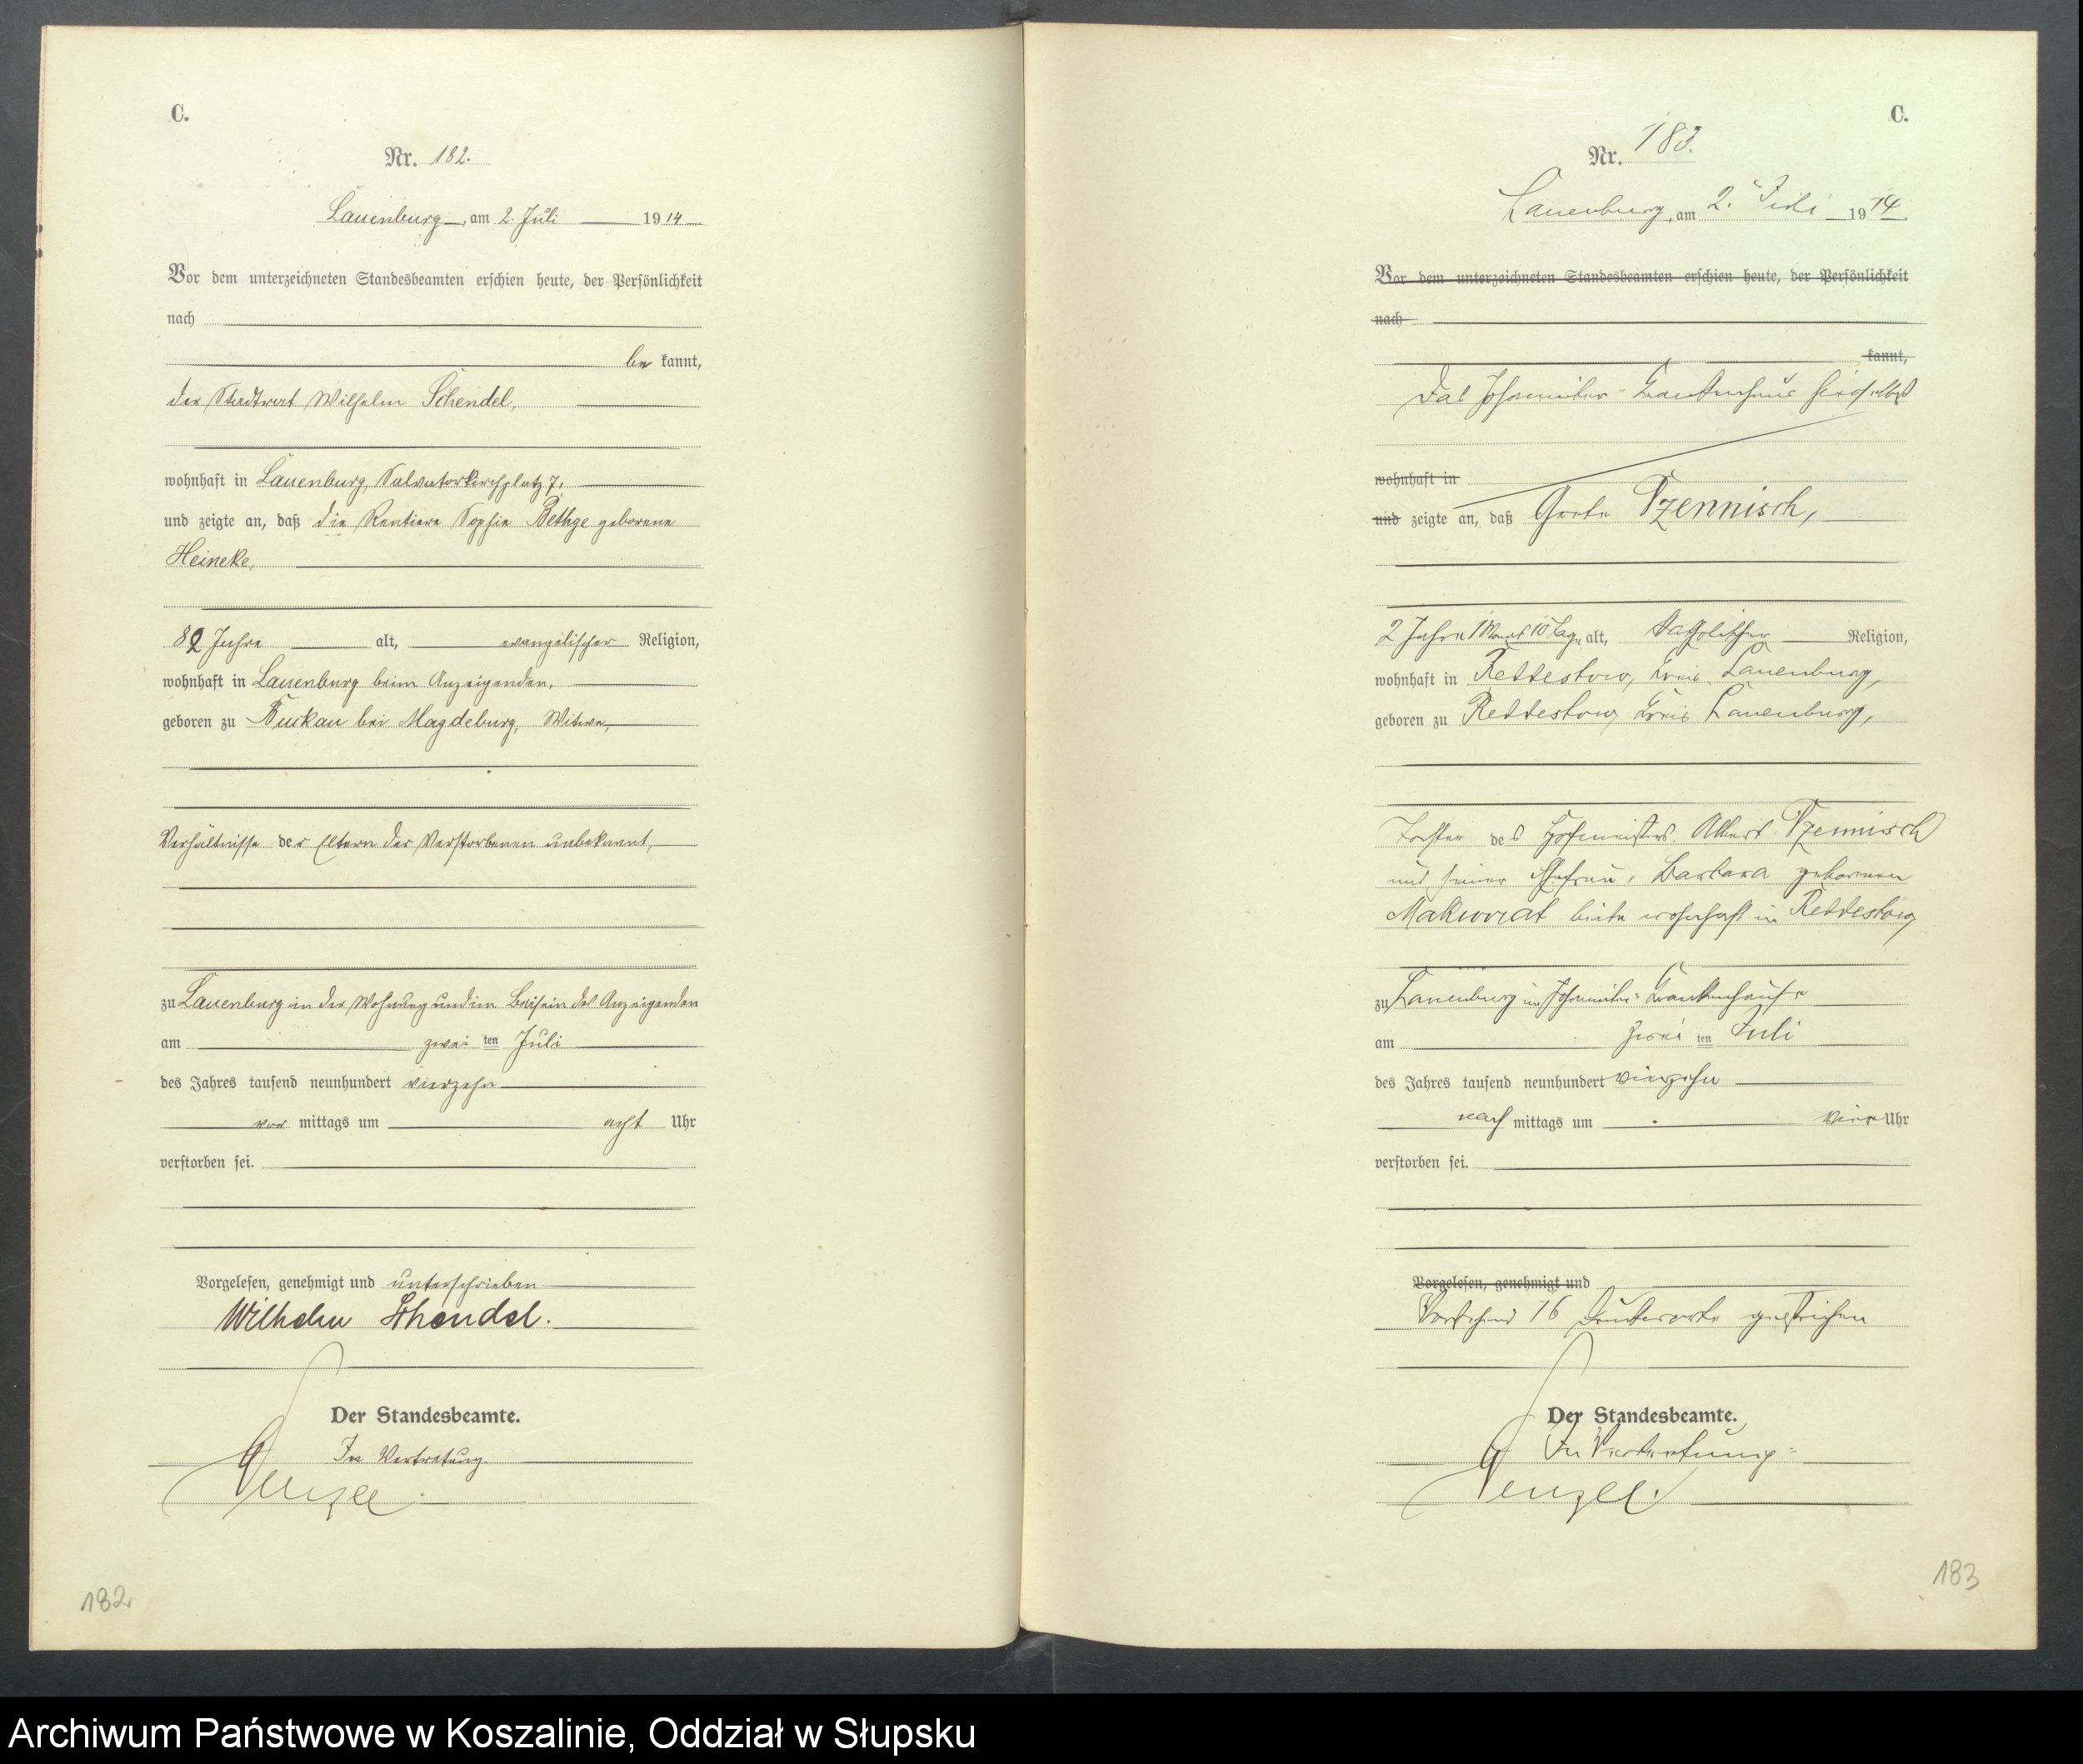 C.
Nr. 182.
Lauenburg, am 2. Juli 1914
Vor dem unterzeichneten Standesbeamten erschien heute, der Persönlichkeit
nach
be kannt,
der Stadtrat Wilhelm Schendel,
wohnhaft in Lauenburg, Salvatorkirchplatz 7,
und zeigte an, daß die Rentiere Sophie Bethge geborene
Heineke,
82 Jahre alt, evangelischer Religion,
wohnhaft in Lauenburg beim Anzeigenden,
geboren zu Buckau bei Magdeburg, Witwe,
Verhältnisse der Eltern der Verstorbenen unbekannt,
zu Lauenburg in der Wohnung und im Beisein des Anzeigenden
am zwei ten Juli
des Jahres tausend neunhundert vierzehn
vor mittags um acht Uhr
verstorben sei.
Vorgelesen, genehmigt und unterschrieben
Wilhelm Schendel.
Der Standesbeamte.
In Vertretung.
182
C.
Nr. 183.
Lauenburg, am 2. Juli 1914
Vor dem unterzeichneten Standesbeamten erschien heute, der Persönlichkeit
nach
kannt,
Das Johanniter-Krankenhaus hierselbst
wohnhaft in
und zeigte an, daß Grete Pzennisch,
2 Jahre 1 Monat 10 Tage alt, katholischer Religion,
wohnhaft in Reddestow, Kreis Lauenburg,
geboren zu Reddestow, Kreis Lauenburg,
Tochter des Hofmeisters Albert Pzennisch
und seiner Ehefrau, Barbara geborenen
Makurrat beide wohnhaft in Reddestow
zu Lauenburg im Johanniter-Krankenhause
am zwei ten Juli
des Jahres tausend neunhundert vierzehn
nach mittags um vier Uhr
verstorben sei.
Vorgelesen, genehmigt und
Vorstehend 16 Druckworte gestrichen
Der Standesbeamte.
In Vertretung:
183
Archiwum Państwowe w Koszalinie, Oddział w Słupsku